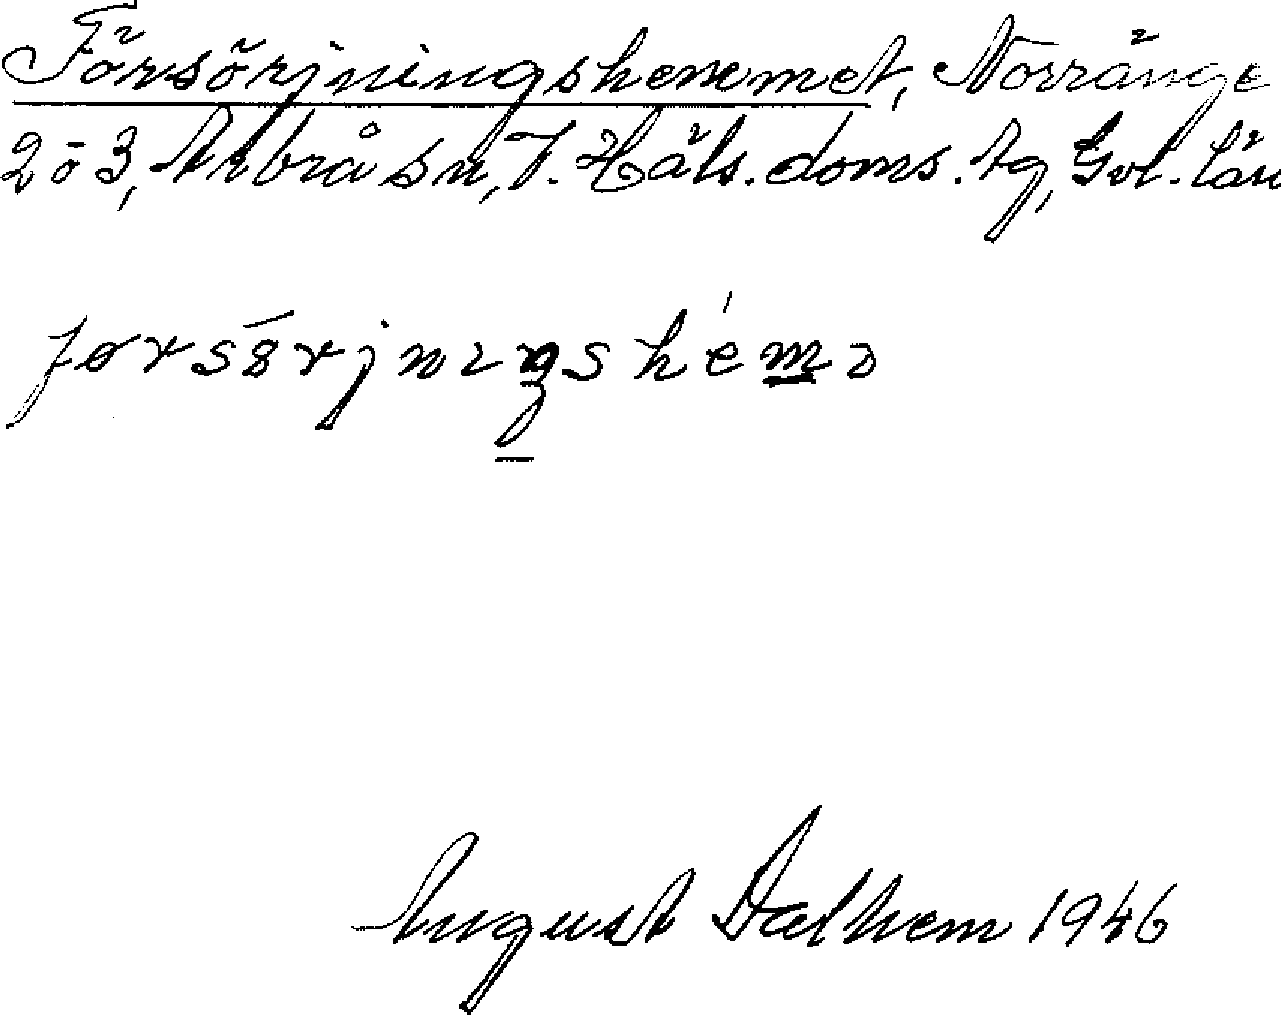 Försörjningshemmet, Norränge
2 o 3, Arbrå sn, V. Häls. doms. tg, Gvl. län
førsȣrjnıŋshémɔ
August Dalhem 1946